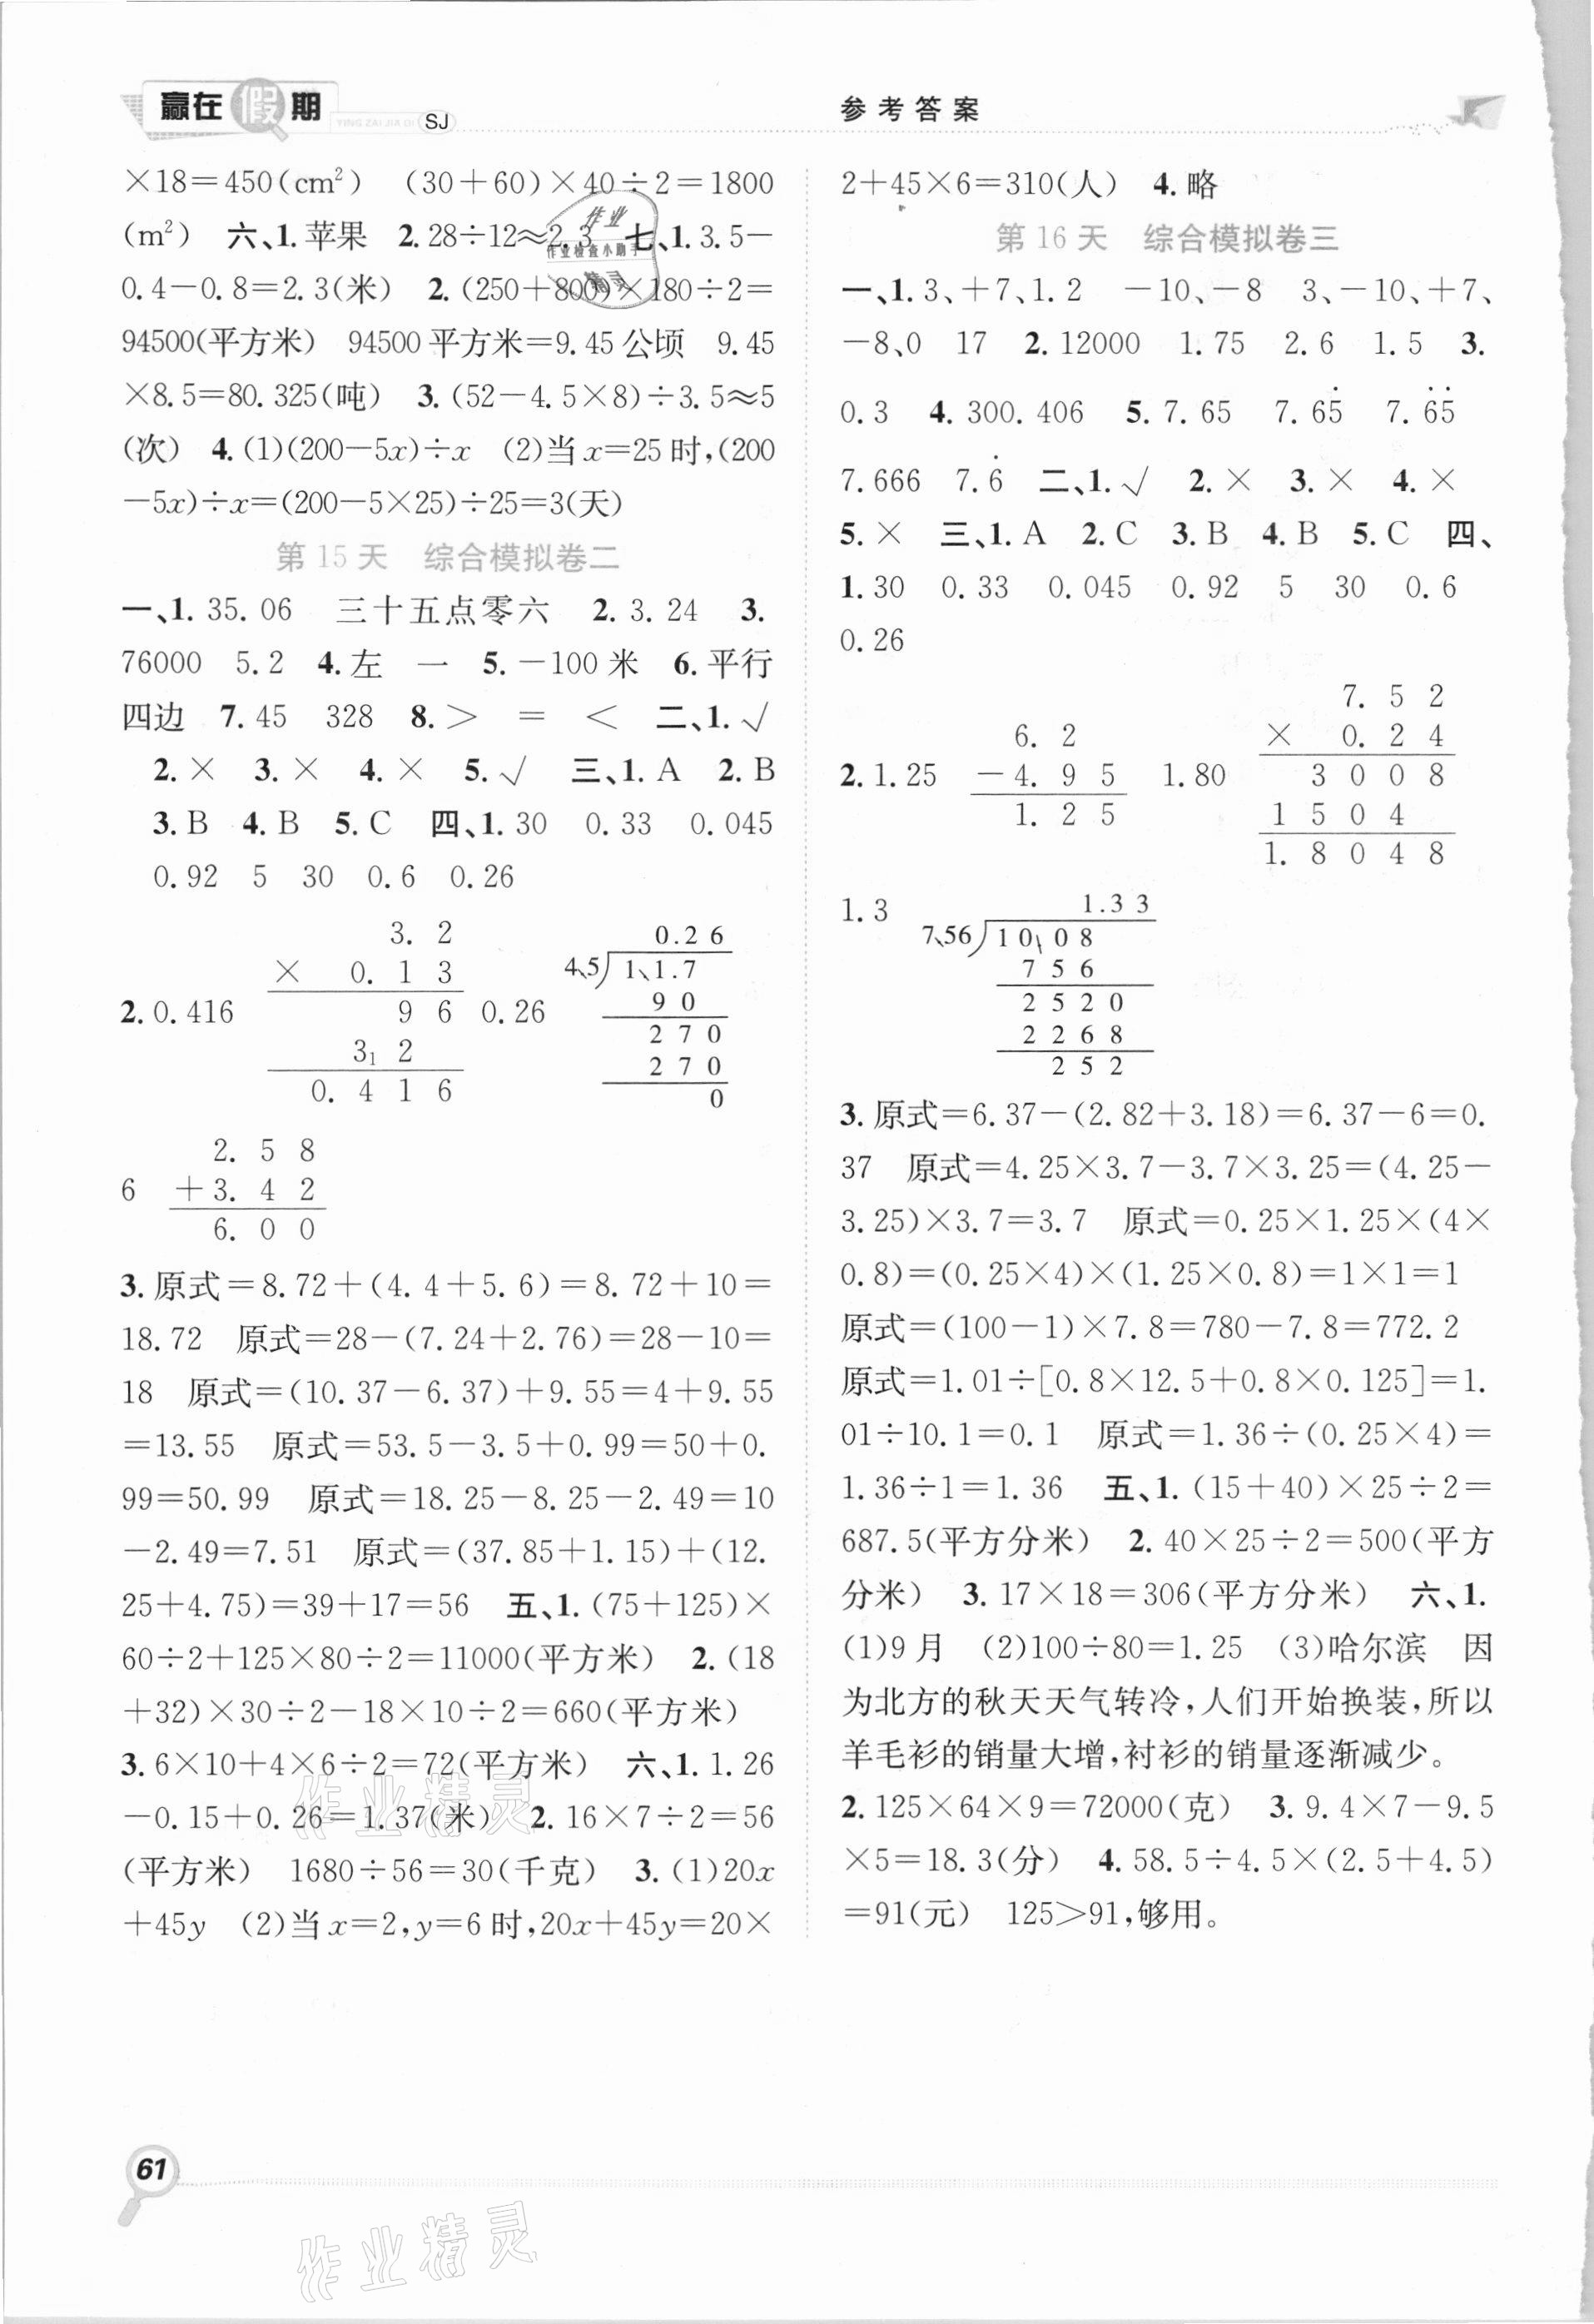 赢在假期
YING ZAI JIA QI
SJ
参考答案
×18=450(cm²) (30+60)×40÷2=1800
(m²) 六、1.苹果 2.28÷12≈2.3 七、1.3.5-
0.4-0.8=2.3(米) 2.(250+800)×180÷2=
94500(平方米) 94500平方米=9.45公顷 9.45
×8.5=80.325(吨) 3.(52-4.5×8)÷3.5≈5
(次) 4.(1)(200-5x)÷x (2)当x=25时,(200
-5x)÷x=(200-5×25)÷25=3(天)
第15天 综合模拟卷二
一、1.35.06 三十五点零六 2.3.24 3.
76000 5.2 4.左 一 5.-100米 6.平行
四边 7.45 328 8.> = < 二、1.√
2.× 3.× 4.× 5.√ 三、1.A 2.B
3.B 4.B 5.C 四、1.30 0.33 0.045
0.92 5 30 0.6 0.26
2.0.416
3.2
× 0.13
96
3₁2
0.416
0.26
0.26
4.5)1.1.7
90
270
270
0
6
2.58
+3.42
6.00
3.原式=8.72+(4.4+5.6)=8.72+10=
18.72 原式=28-(7.24+2.76)=28-10=
18 原式=(10.37-6.37)+9.55=4+9.55
=13.55 原式=53.5-3.5+0.99=50+0.
99=50.99 原式=18.25-8.25-2.49=10
-2.49=7.51 原式=(37.85+1.15)+(12.
25+4.75)=39+17=56 五、1.(75+125)×
60÷2+125×80÷2=11000(平方米) 2.(18
+32)×30÷2-18×10÷2=660(平方米)
3.6×10+4×6÷2=72(平方米) 六、1.1.26
-0.15+0.26=1.37(米) 2.16×7÷2=56
(平方米) 1680÷56=30(千克) 3.(1)20x
+45y (2)当x=2,y=6时,20x+45y=20×
2+45×6=310(人) 4.略
第16天 综合模拟卷三
一、1.3、+7、1.2 -10、-8 3、-10、+7、
-8、0 17 2.12000 1.75 2.6 1.5 3.
0.3 4.300.406 5.7.65 7.65̇ 7.6̇5̇
7.666 7.6̇ 二、1.√ 2.× 3.× 4.×
5.× 三、1.A 2.C 3.B 4.B 5.C 四、
1.30 0.33 0.045 0.92 5 30 0.6
0.26
2.1.25
6.2
-4.95
1.25
1.80
7.52
× 0.24
3008
1504
1.8048
1.3
1.33
7.56)10.08
756
2520
2268
252
3.原式=6.37-(2.82+3.18)=6.37-6=0.
37 原式=4.25×3.7-3.7×3.25=(4.25-
3.25)×3.7=3.7 原式=0.25×1.25×(4×
0.8)=(0.25×4)×(1.25×0.8)=1×1=1
原式=(100-1)×7.8=780-7.8=772.2
原式=1.01÷[0.8×12.5+0.8×0.125]=1.
01÷10.1=0.1 原式=1.36÷(0.25×4)=
1.36÷1=1.36 五、1.(15+40)×25÷2=
687.5(平方分米) 2.40×25÷2=500(平方
分米) 3.17×18=306(平方分米) 六、1.
(1)9月 (2)100÷80=1.25 (3)哈尔滨 因
为北方的秋天天气转冷,人们开始换装,所以
羊毛衫的销量大增,衬衫的销量逐渐减少。
2.125×64×9=72000(克) 3.9.4×7-9.5
×5=18.3(分) 4.58.5÷4.5×(2.5+4.5)
=91(元) 125>91,够用。
作业
作业检查小助手
精灵
作业精灵
61
作业精灵